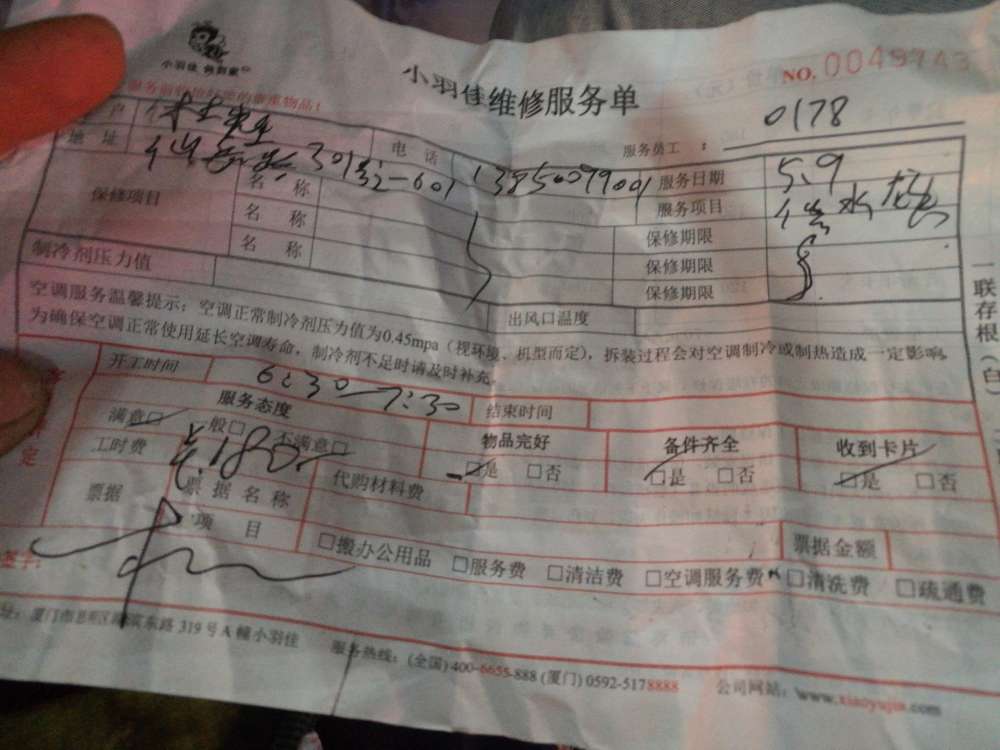 小羽佳 到家
小羽佳维修服务单
NO. 0049743
服务员工 : 0178
户 先生 电话 13850099001 服务日期 5.9
地址 301之2-601 服务项目 修水龙头
保修项目 名称 保修期限
名称 保修期限
名称 保修期限
制冷剂压力值 出风口温度
空调服务温馨提示:空调正常制冷剂压力值为0.45mpa(视环境、机型而定),拆装过程会对空调制冷或制热造成一定影响
为确保空调正常使用延长空调寿命,制冷剂不足时请及时补充
开工时间 6:30—7:30 结束时间
服务态度 物品完好 备件齐全 收到卡片
满意□ 一般□ 不满意□ □是 □否 □是 □否 □是 □否
工时费 180 代购材料费
票据 票据名称 票据金额
项目 □搬办公用品 □服务费 □清洁费 □空调服务费 □清洗费 □疏通费
签字:
址:厦门市思明区 滨东路319号A幢小羽佳 服务热线:(全国)400-6655-888 (厦门)0592-5178888 公司网站:www.xiaoyujia.com
一联存根(白)